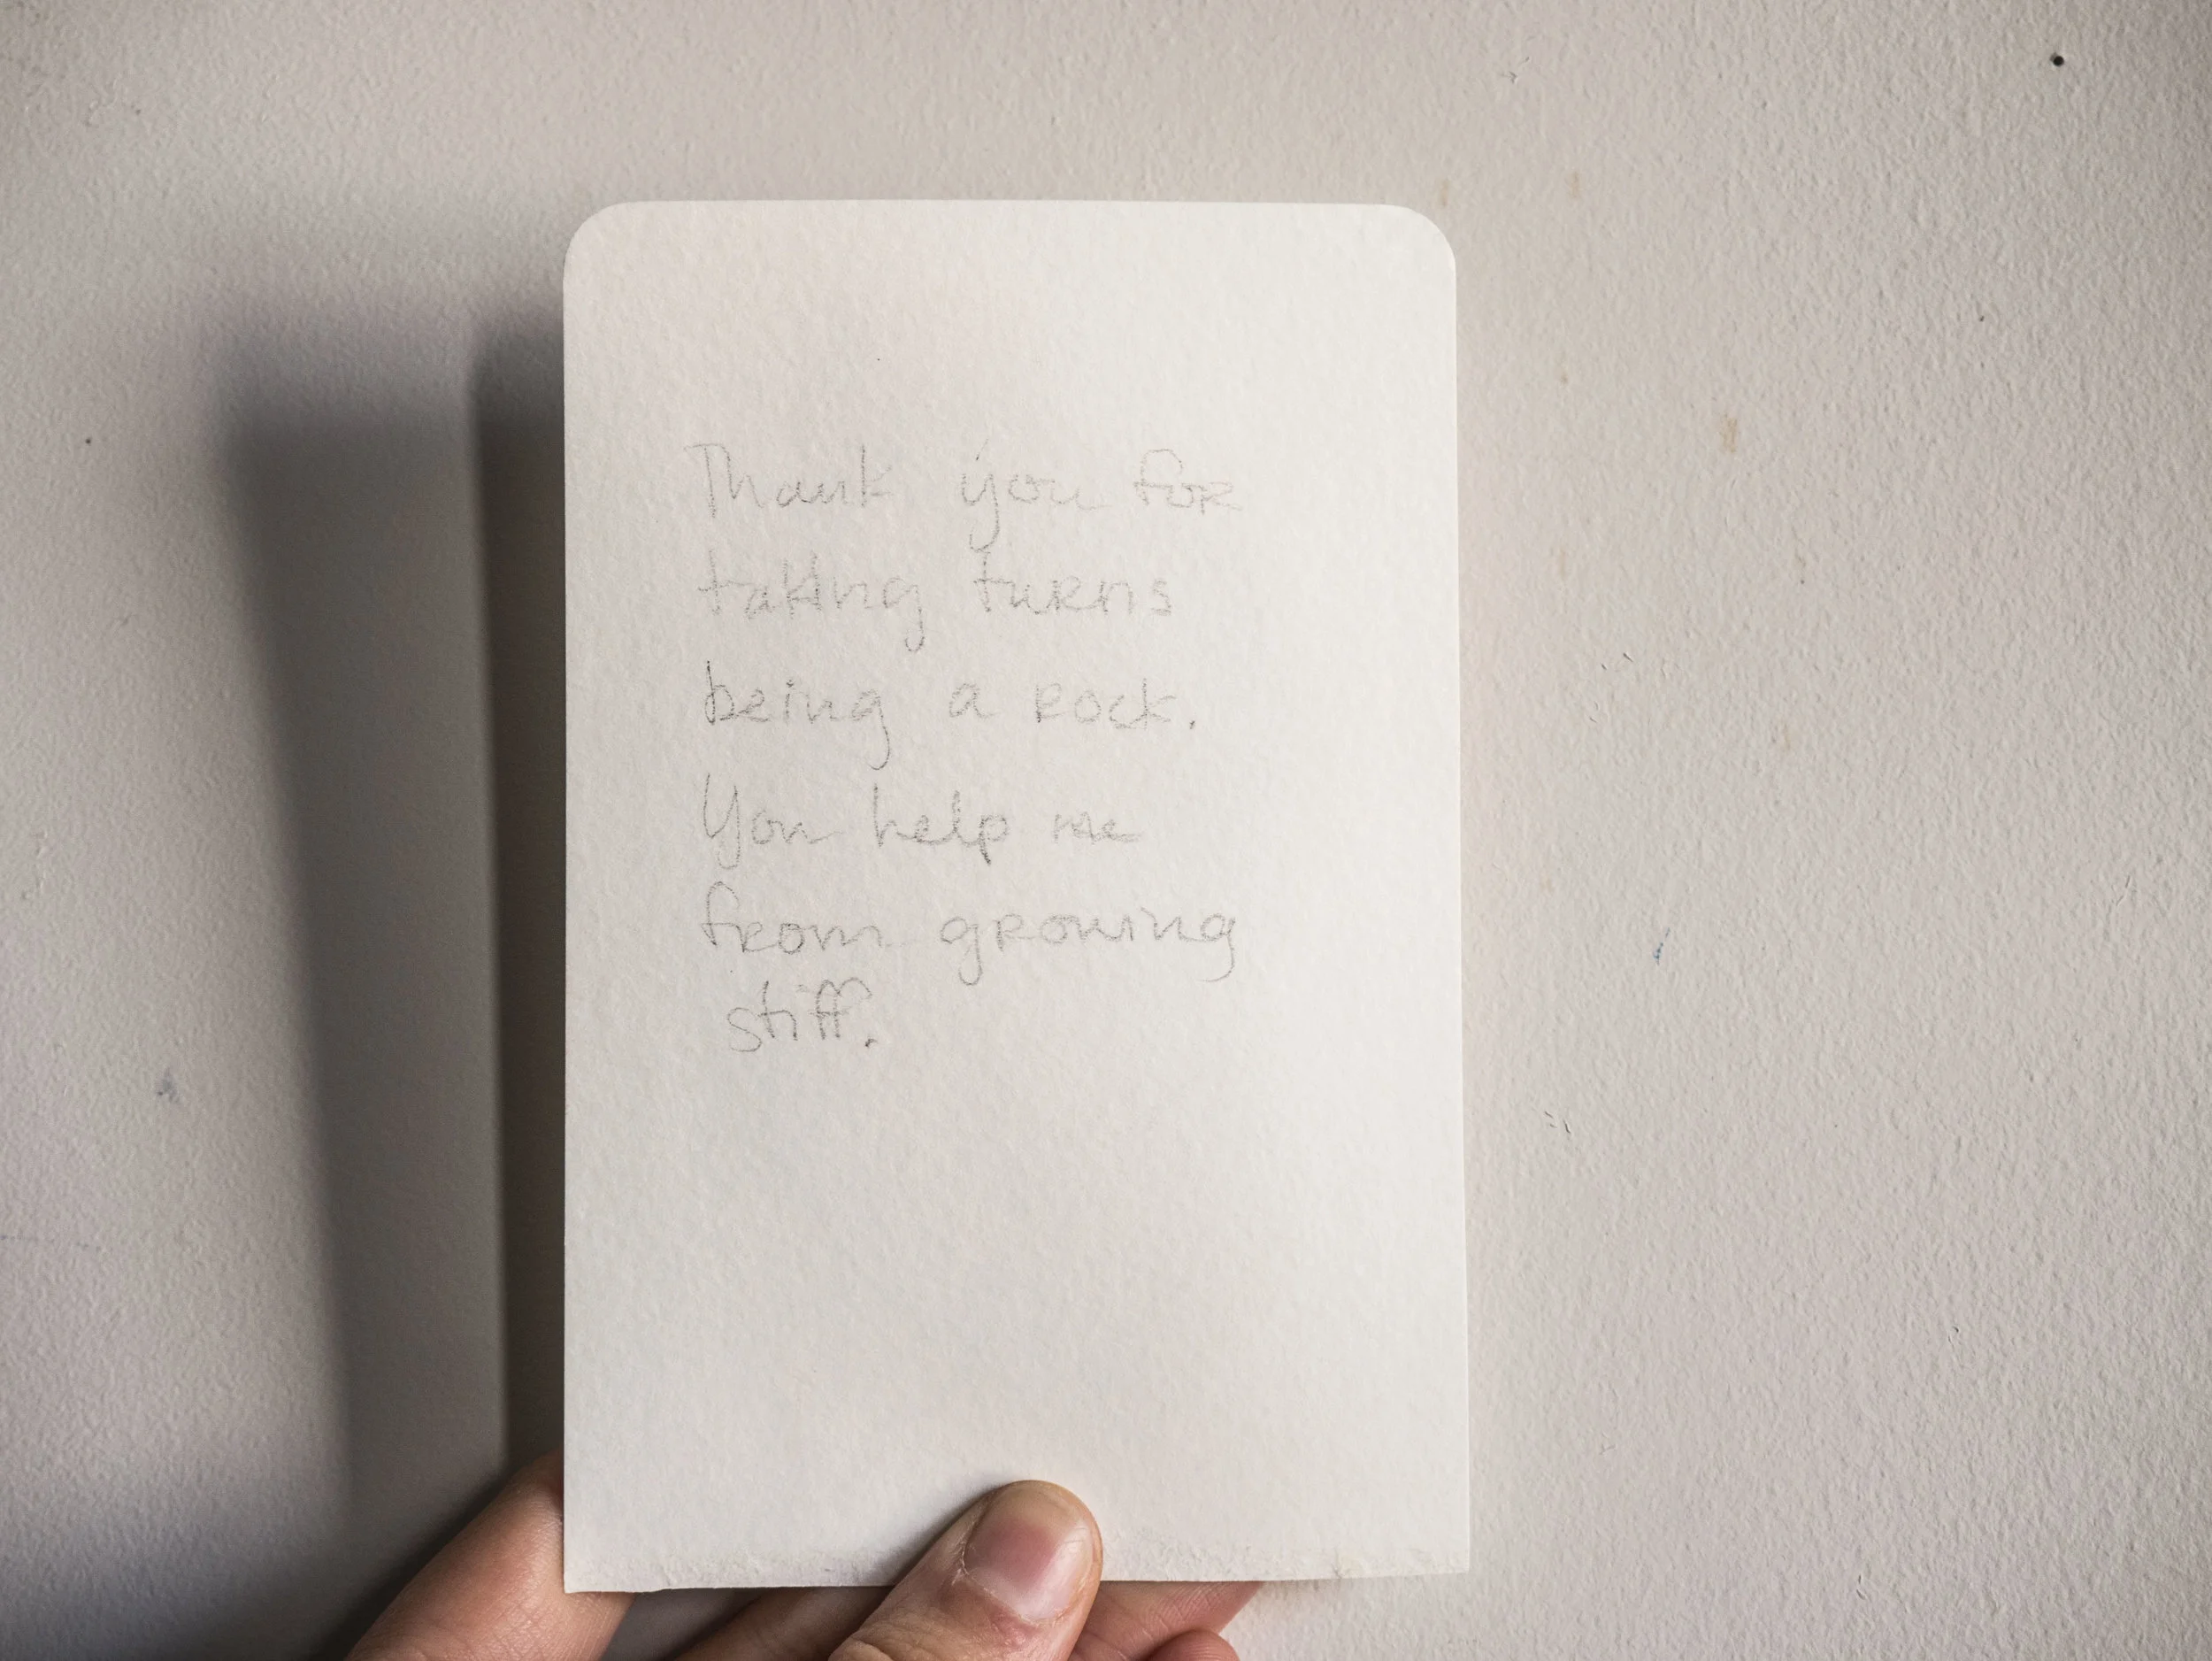 Thank you for
taking turns
being a rock.
You help me
from growing
stiff.